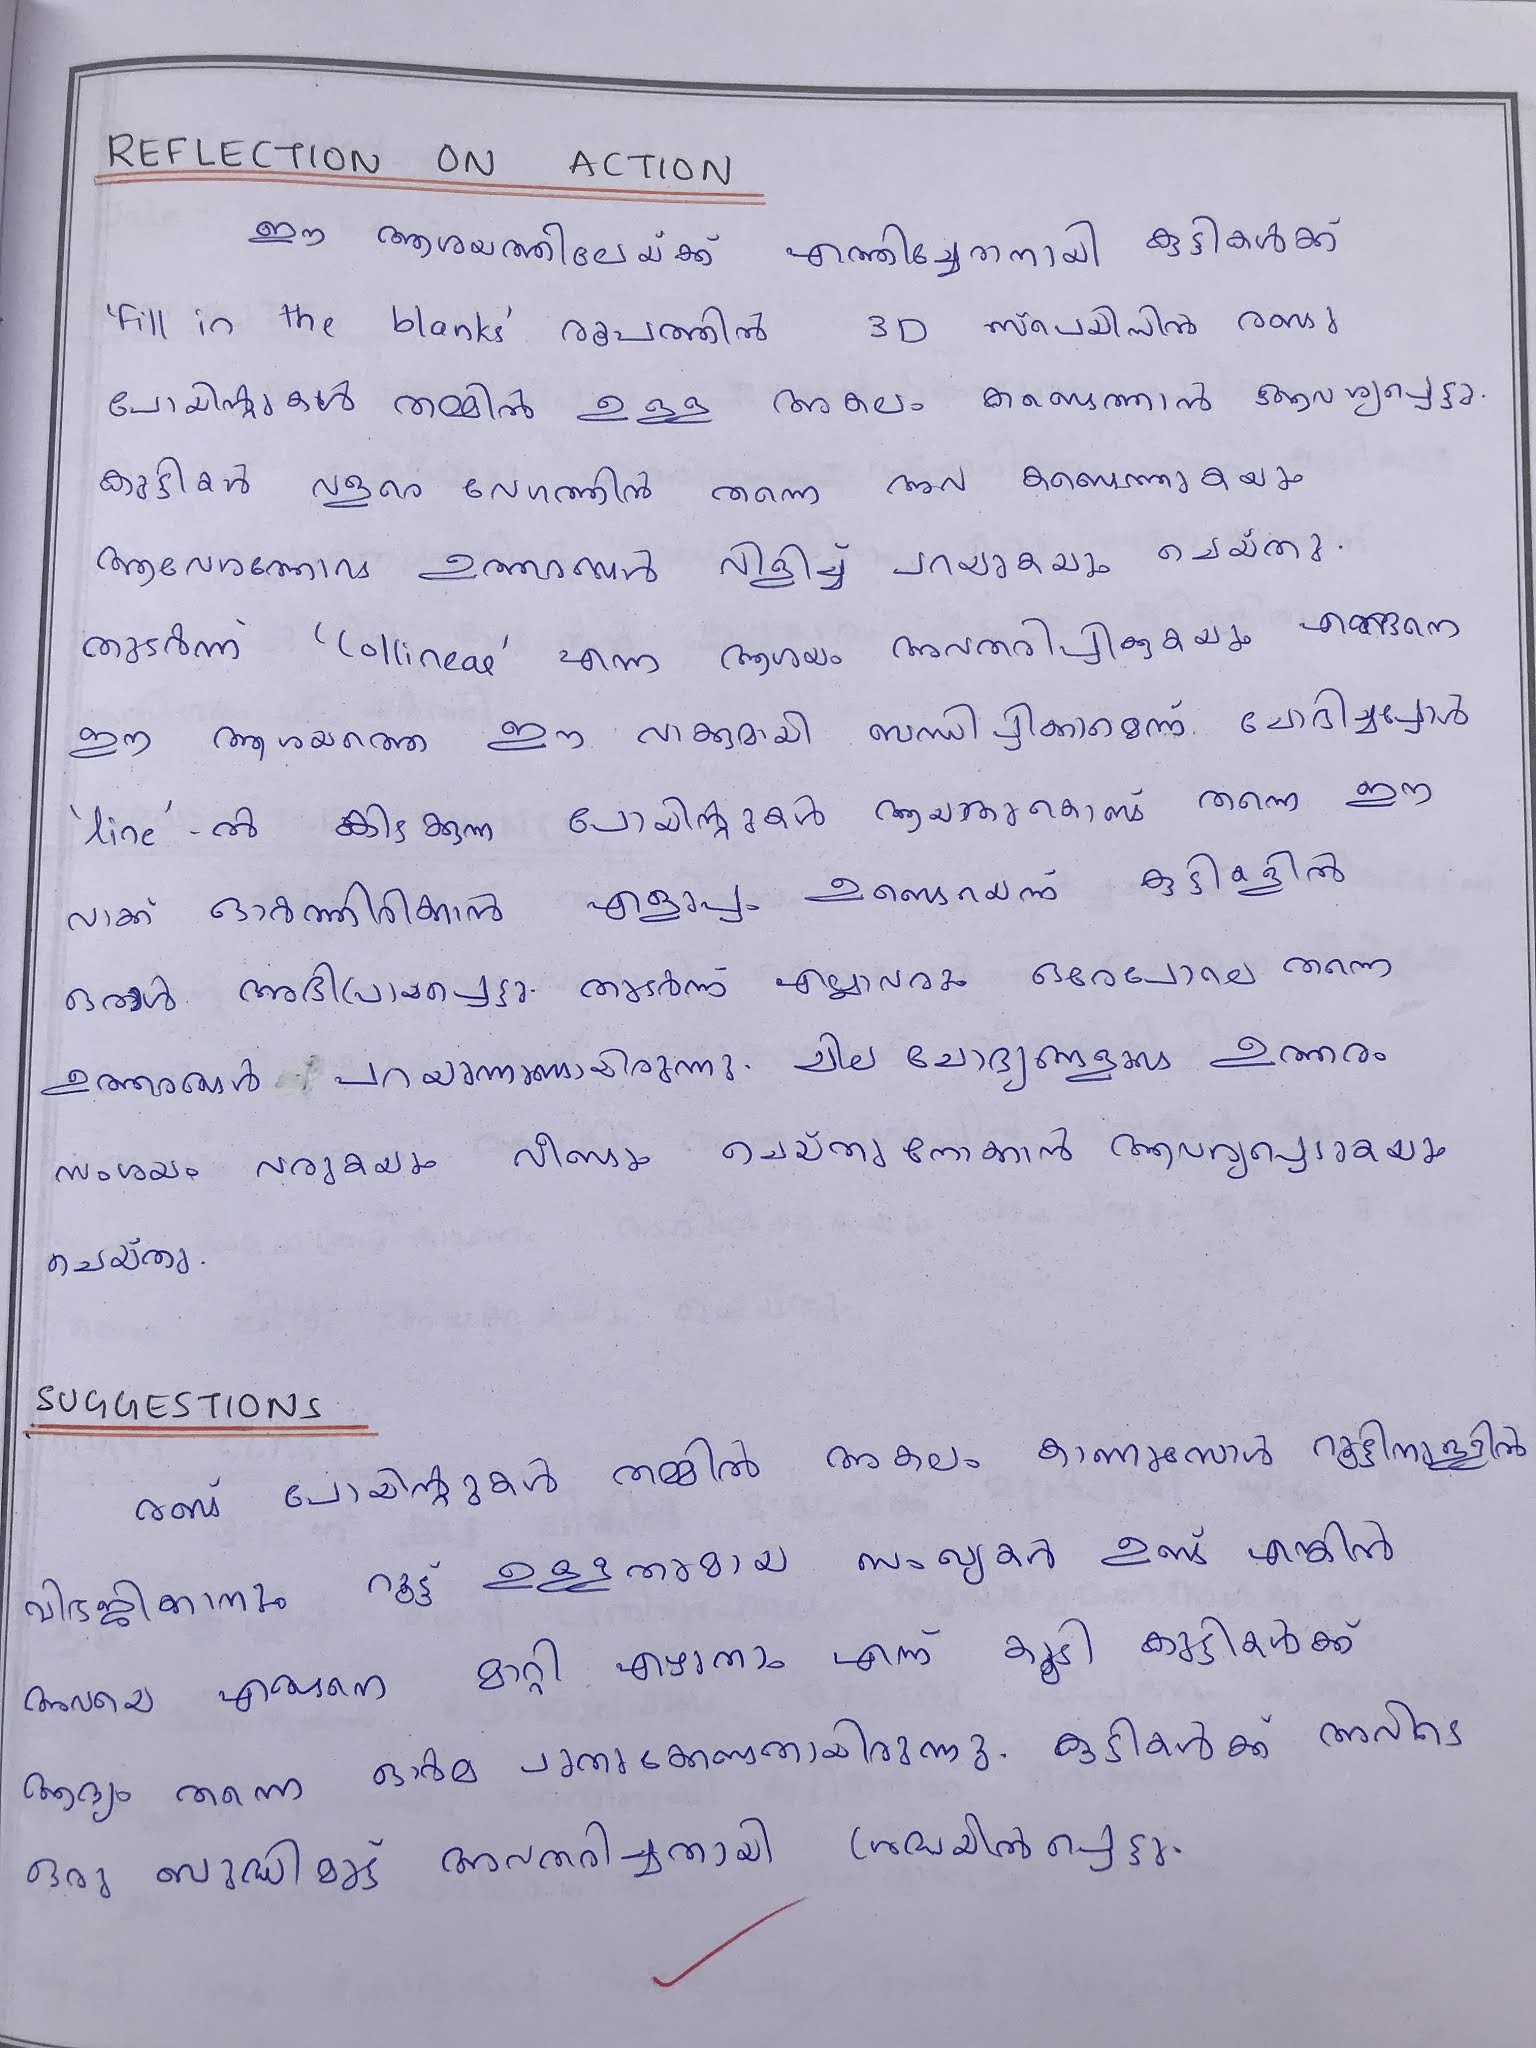 REFLECTION ON ACTION
ഈ ആശയത്തിലേയ്ക്ക് എത്തിച്ചേരാനായി കുട്ടികൾക്ക്
'fill in the blanks' രൂപത്തിൽ 3D സ്പെയിസിൽ രണ്ടു
പോയിന്റുകൾ തമ്മിൽ ഉള്ള അകലം കണ്ടെത്താൻ ആവശ്യപ്പെട്ടു.
കുട്ടികൾ വളരെ വേഗത്തിൽ തന്നെ അവ കണ്ടെത്തുകയും
ആവേശത്തോടെ ഉത്തരങ്ങൾ വിളിച്ച് പറയുകയും ചെയ്തു.
തുടർന്ന് 'Collinear' എന്ന ആശയം അവതരിപ്പിക്കുകയും എങ്ങനെ
ഈ ആശയത്തെ ഈ വാക്കുമായി ബന്ധിപ്പിക്കാമെന്ന് ചോദിച്ചപ്പോൾ
'line' - ൽ കിടക്കുന്ന പോയിന്റുകൾ ആയതുകൊണ്ട് തന്നെ ഈ
വാക്ക് ഓർത്തിരിക്കാൻ എളുപ്പം ഉണ്ടെന്ന് കുട്ടികളിൽ
ഒരാൾ അഭിപ്രായപ്പെട്ടു. തുടർന്ന് എല്ലാവരും ഒരേപോലെ തന്നെ
ഉത്തരങ്ങൾ പറയുന്നുണ്ടായിരുന്നു. ചില ചോദ്യങ്ങളുടെ ഉത്തരം
സംശയം വരുകയും വീണ്ടും ചെയ്തു നോക്കാൻ ആവശ്യപ്പെടുകയും
ചെയ്തു.
SUGGESTIONS
രണ്ട് പോയിന്റുകൾ തമ്മിൽ അകലം കാണുമ്പോൾ റൂട്ടിനുള്ളിൽ
വിഭജിക്കാനും റൂട്ട് ഉള്ളതുമായ സംഖ്യകൾ ഉണ്ട് എങ്കിൽ
അവയെ എങ്ങനെ മാറ്റി എഴുതാം എന്ന് കൂടി കുട്ടികൾക്ക്
ആദ്യം തന്നെ ഓർമ പുതുക്കേണ്ടതായിരുന്നു. കുട്ടികൾക്ക് അവിടെ
ഒരു ബുദ്ധിമുട്ട് അവതരിച്ചതായി ശ്രദ്ധയിൽപ്പെട്ടു.